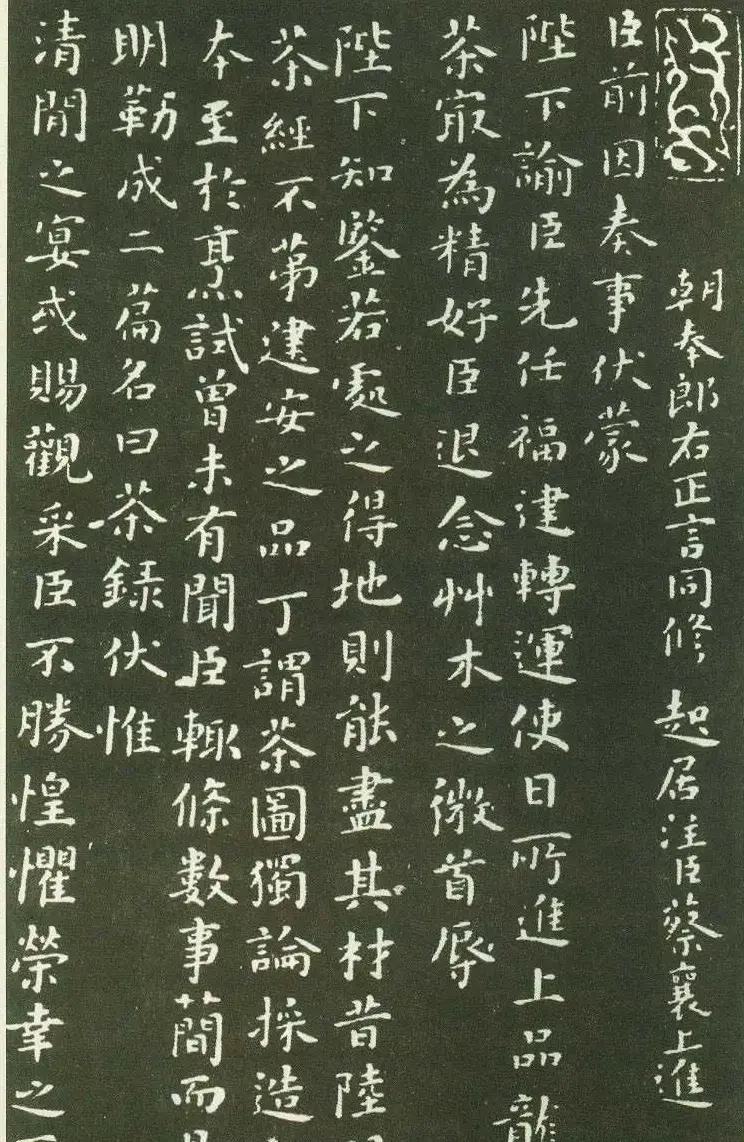 朝奉郎右正言同修起居注臣蔡襄上進
臣前因奏事伏蒙
陛下諭臣先任福建轉運使日所進上品龍
茶㝡為精好臣退念艸木之微首辱
陛下知鑒若處之得地則能盡其材昔陸
茶經不苐建安之品丁謂茶圖獨論採造
本至於烹試曾未有聞臣輒條數事簡而
明勒成二篇名曰茶録伏惟
清閒之宴或賜觀采臣不勝惶懼榮幸之